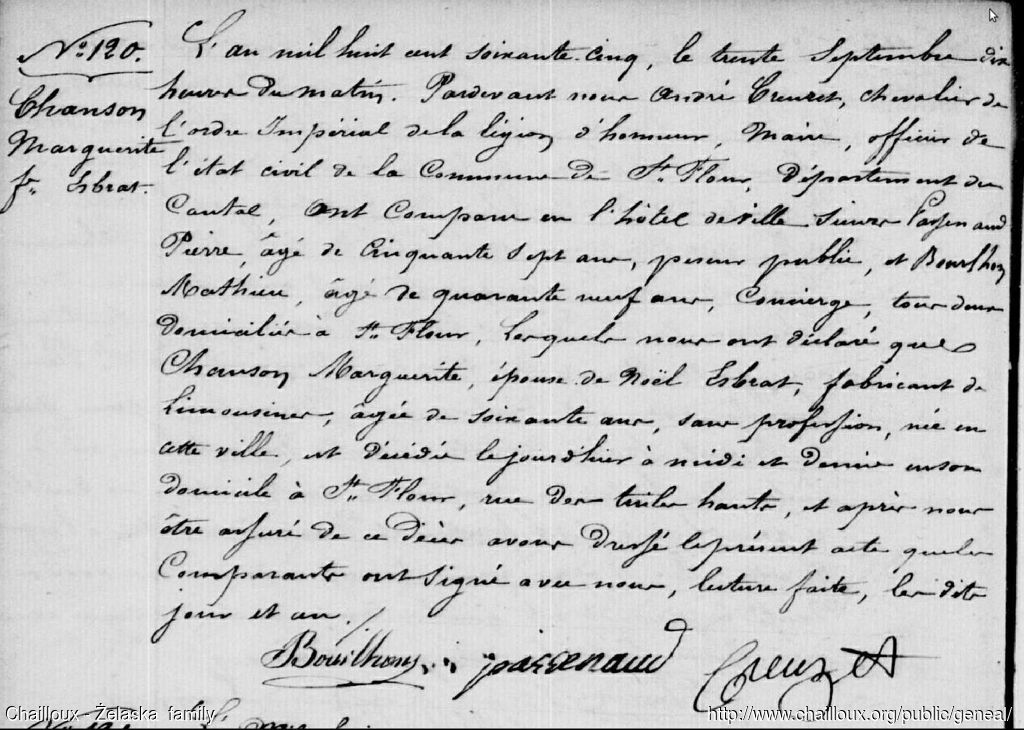 No. 120.
Chanson
Marguerite
fe. Esbrat.
L'an mil huit cent soixante-cinq, le trente Septembre dix
heures du matin. Pardevant nous André Creuzet, chevalier de
l'ordre Impérial de la légion d'honneur, Maire, officier de
l'état civil de la Commune de St. Flour, Département du
Cantal, Ont Comparu en l'hôtel de ville Sieurs Passenaud
Pierre, âgé de Cinquante Sept ans, peseur public, et Bouilhon
Mathieu, âgé de quarante neuf ans, Concierge, tous deux
domiciliés à St. Flour, Lesquels nous ont déclaré que
Chanson Marguerite, épouse de Noël Esbrat, fabricant de
Limousines, âgée de soixante ans, sans profession, née en
cette ville, est Décédée le jour d'hier à midi et demie en son
domicile à St. Flour, rue des tuiles hauts, et après nous
être assuré de ce Décès avons Dressé le présent acte que les
Comparants ont Signé avec nous, lecture faite, les dits
jour et an./
Bouilhon passenaud Creuzet
Chailloux - Żelaska family
http://www.chailloux.org/public/geneal/